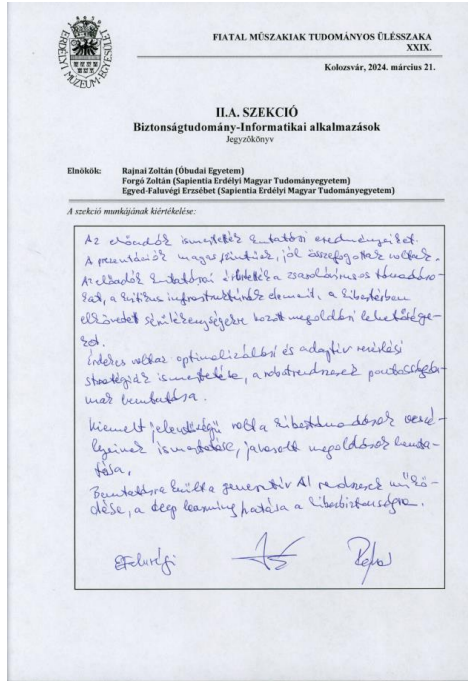 ERDÉLYI MÚZEUM-EGYESÜLET
FIATAL MŰSZAKIAK TUDOMÁNYOS ÜLÉSSZAKA
XXIX.
Kolozsvár, 2024. március 21.
II.A. SZEKCIÓ
Biztonságtudomány-Informatikai alkalmazások
Jegyzőkönyv
Elnökök: Rajnai Zoltán (Óbudai Egyetem)
Forgó Zoltán (Sapientia Erdélyi Magyar Tudományegyetem)
Egyed-Faluvégi Erzsébet (Sapientia Erdélyi Magyar Tudományegyetem)
A szekció munkájának kiértékelése:
Az előadók ismertették kutatási eredményeiket.
A prezentációk magas szintűek, jól összefogottak voltak.
Az előadók kutatásai érintették a zsarolóvírusos támadáso-
kat, a kritikus infrastruktúrák elemeit, a kibertérben
elkövetett sérülékenységekre hozott megoldási lehetősége-
ket.
Érdekes voltak optimalizálási és adaptív vezérlési
stratégiák ismertetése, a robotrendszerek pontosságá
nak bemutatása.
Kiemelt jelentőségű volt a kibertámadások veszé-
lyeinek ismertetése, javasolt megoldások bemuta-
tása.
Bemutatásra került a generatív AI rendszerek műkö-
dése, a deep learning hatása a kiberbiztonságra.
EFaluvégi